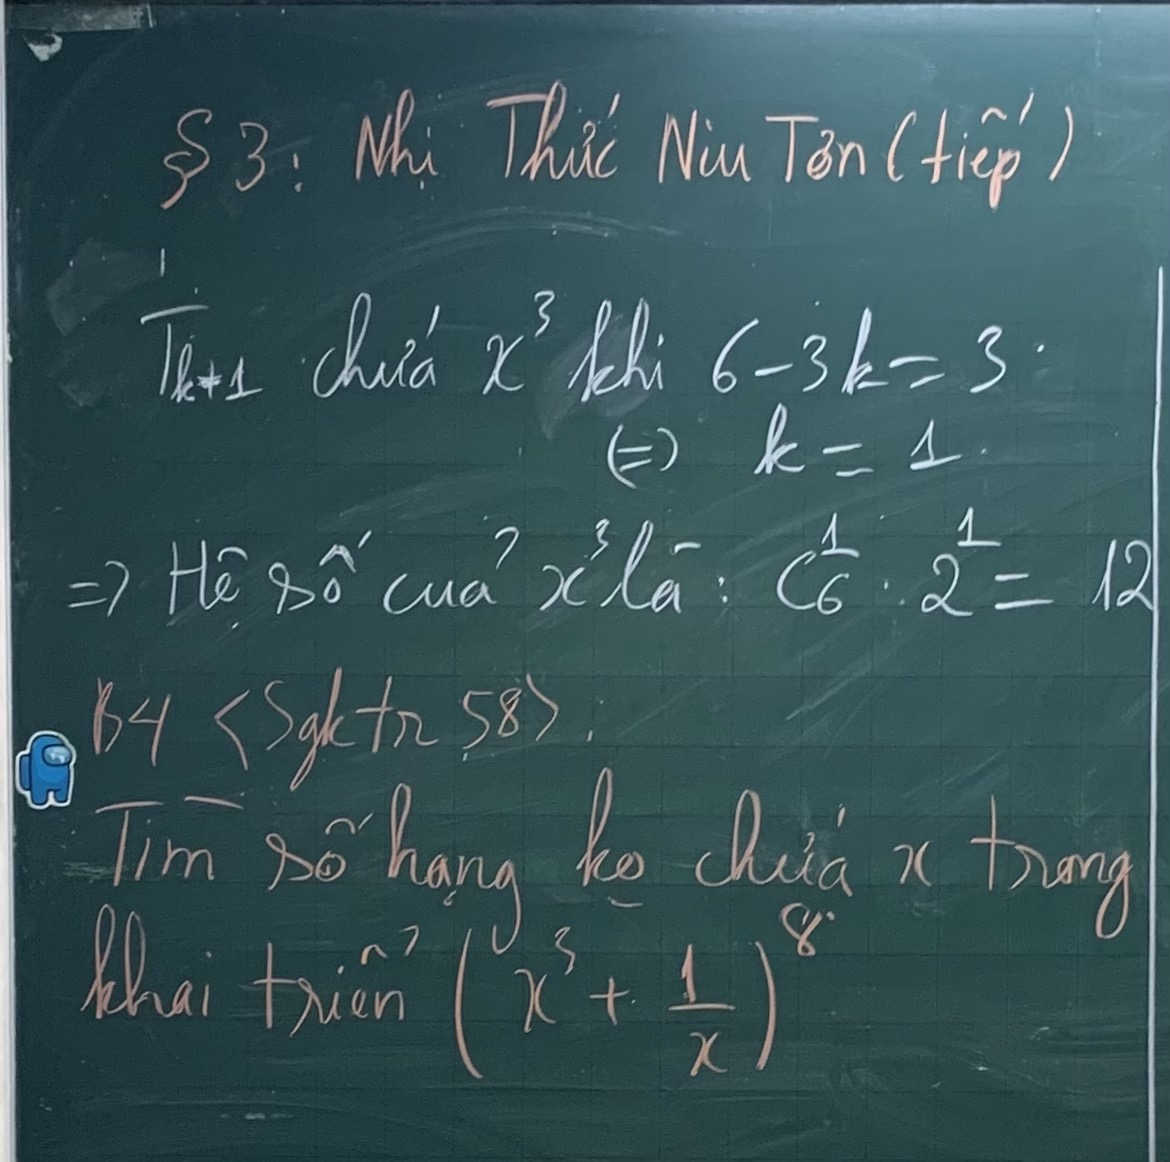 § 3: Nhị Thức Niu Tơn (tiếp)
T_{k+1} chứa x³ khi 6-3k = 3.
(=) k = 1.
=> Hệ số của x³ là: C_6^1 . 2^1 = 12
B4 <Sgk tr 58>.
Tìm số hạng ko chứa x trong
khai triển (x³ + 1/x)⁸